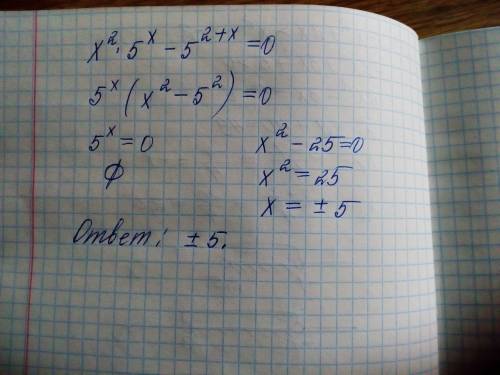 x²·5ˣ − 5²⁺ˣ = 0
5ˣ(x² − 5²) = 0
5ˣ = 0 x² − 25 = 0
∅ x² = 25
x = ± 5
Ответ: ± 5.